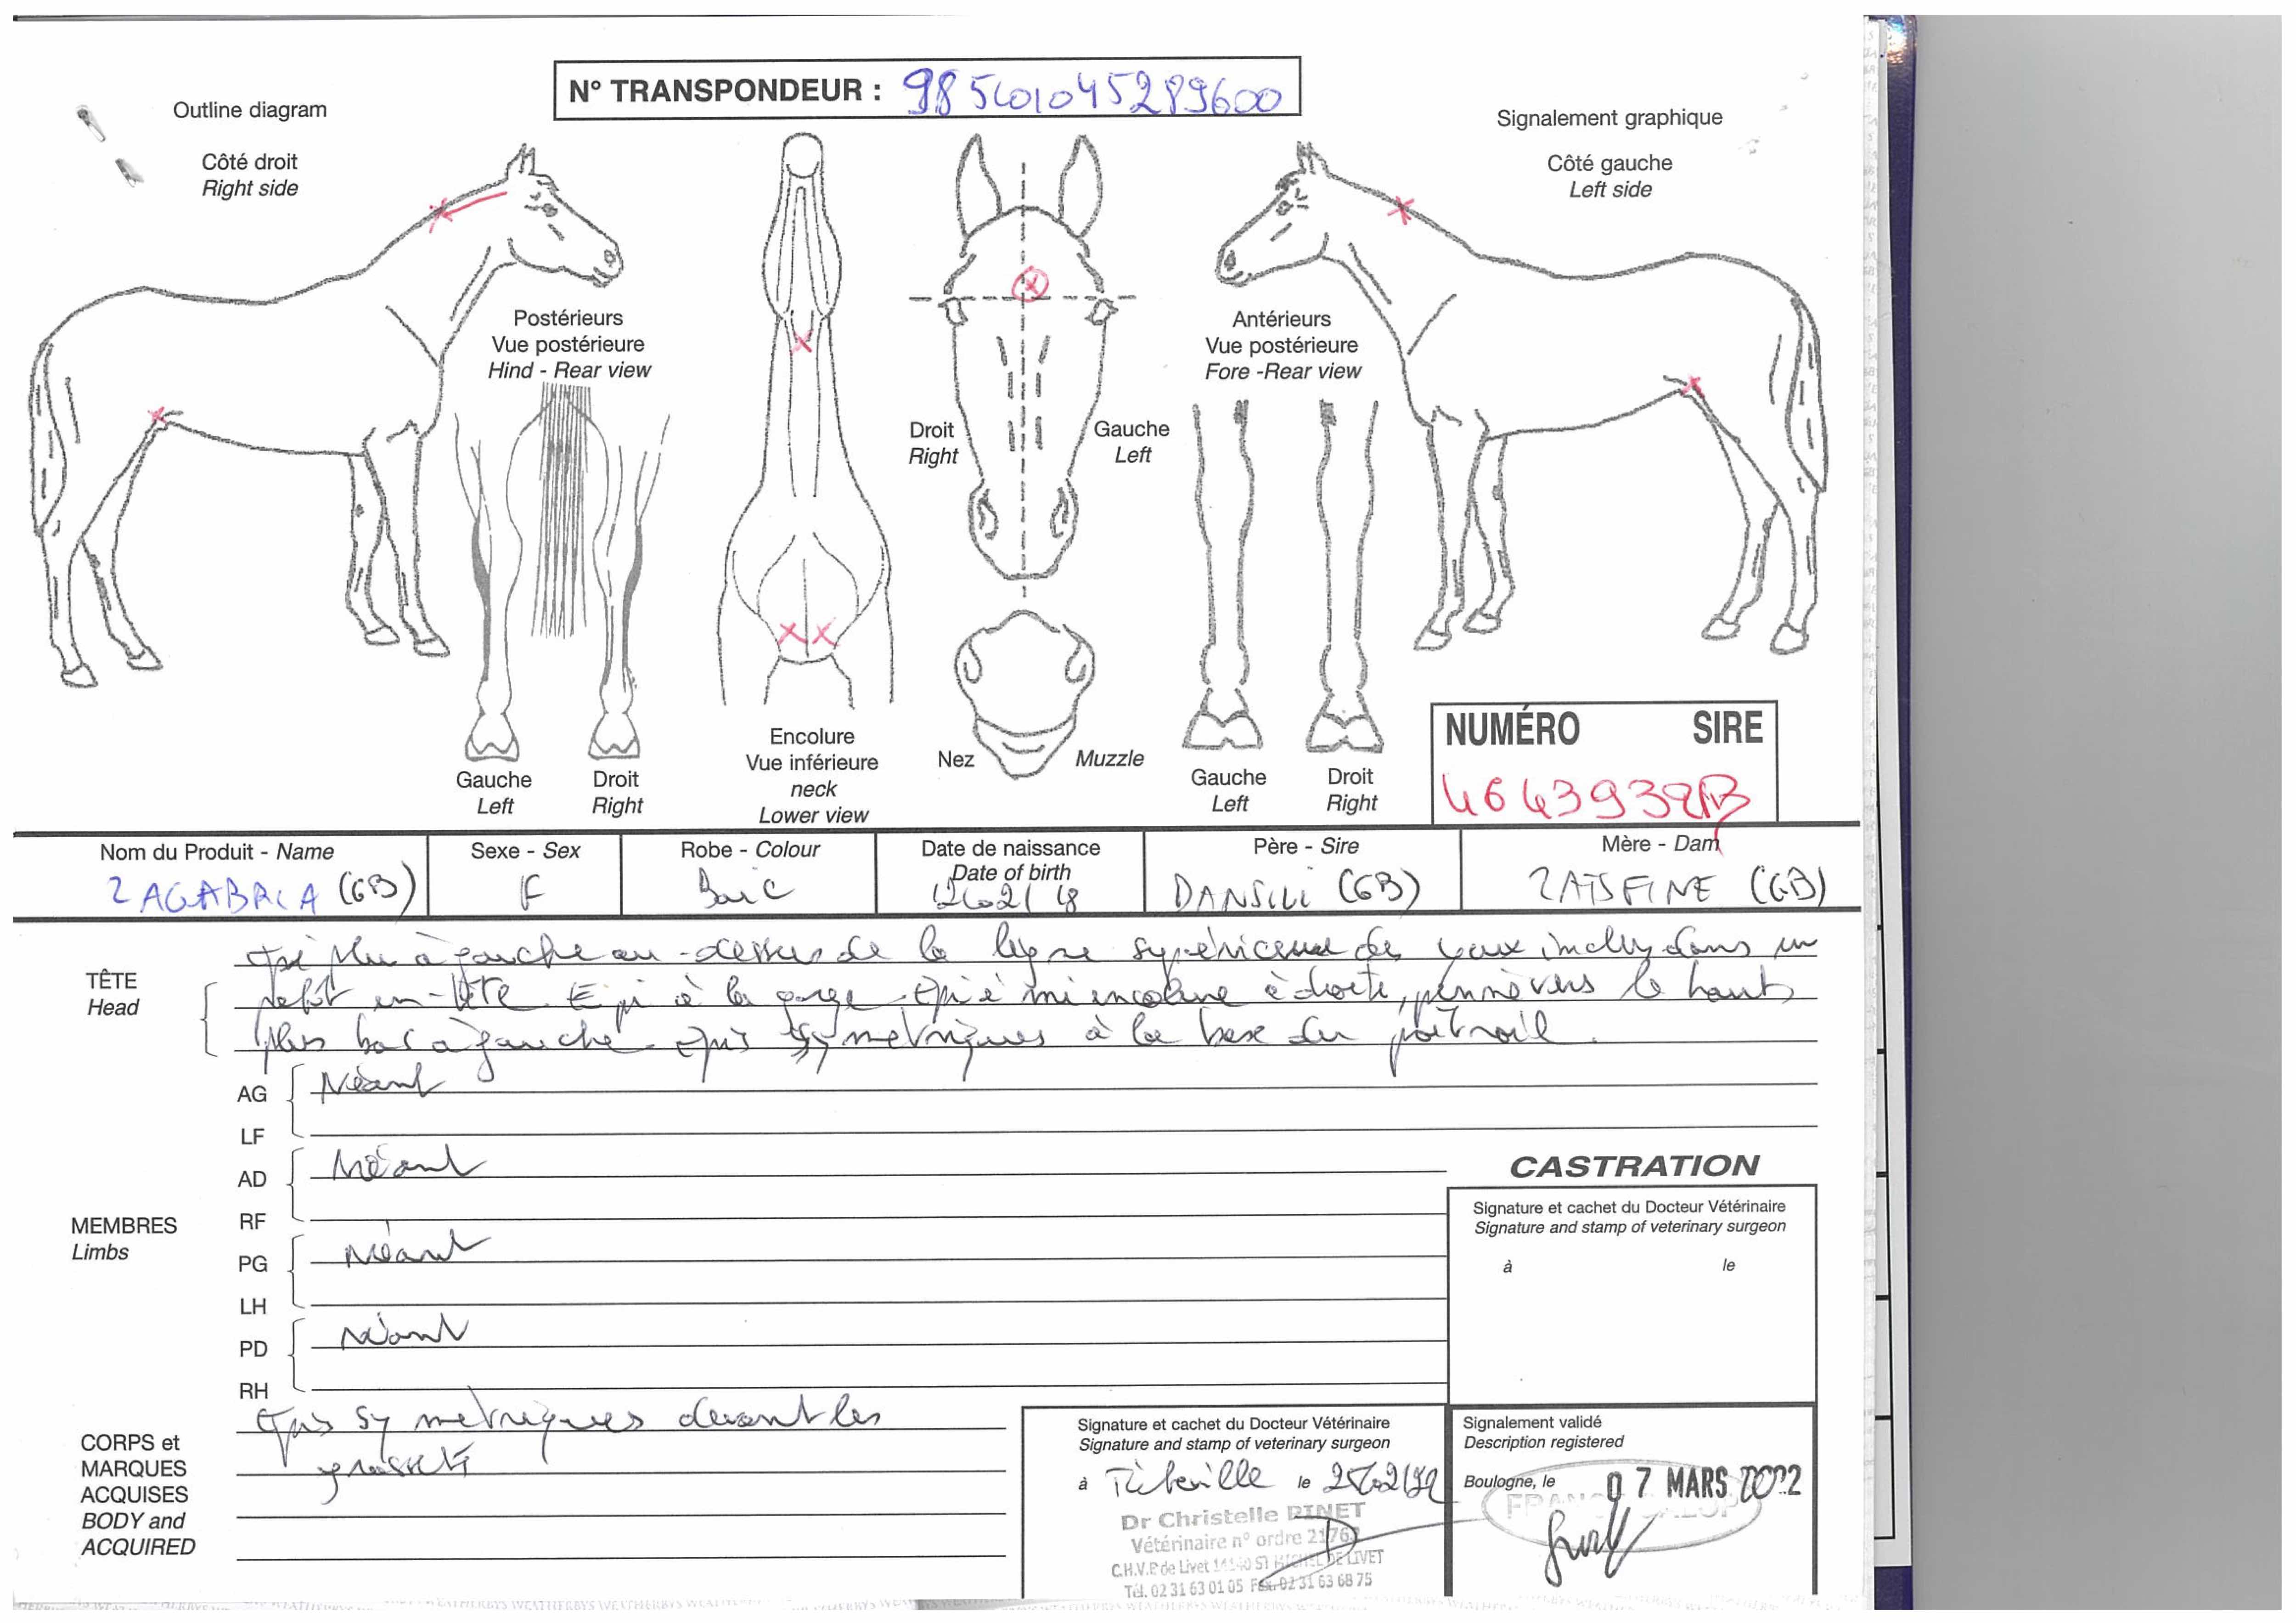 N° TRANSPONDEUR : 985101045289600
Outline diagram
Signalement graphique
Côté droit
Right side
Côté gauche
Left side
Postérieurs
Vue postérieure
Hind - Rear view
Antérieurs
Vue postérieure
Fore -Rear view
Droit
Right
Gauche
Left
Encolure
Vue inférieure
neck
Lower view
Nez
Muzzle
Gauche
Left
Droit
Right
Gauche
Left
Droit
Right
NUMÉRO SIRE
Nom du Produit - Name
ZAGABRIA (GB)
Sexe - Sex
F
Robe - Colour
Baie
Date de naissance
Date of birth
Père - Sire
DANSILI (GB)
Mère - Dam
ZATSFINE (GB)
TÊTE
Head
à gauche au-dessus de la ligne supérieure des yeux inclus dans un
petit en-tête. Epi à la gorge. Epi à mi encolure à droite, penné vers le haut,
plus bas à gauche. Epis symétriques à la base du poitrail.
MEMBRES
Limbs
AG
Néant
LF
AD
Néant
RF
PG
Néant
LH
PD
Néant
RH
CORPS et
MARQUES
ACQUISES
BODY and
ACQUIRED
Epis symétriques devant les
grassets
CASTRATION
Signature et cachet du Docteur Vétérinaire
Signature and stamp of veterinary surgeon
à le
Signature et cachet du Docteur Vétérinaire
Signature and stamp of veterinary surgeon
à le
Dr Christelle PINET
Vétérinaire n° ordre 21767
C.H.V.P. de Livet 14140 ST MICHEL DE LIVET
Tél. 02 31 63 01 05 Fax 02 31 63 68 75
Signalement validé
Description registered
Boulogne, le 07 MARS 2022
FRANCE GALOP